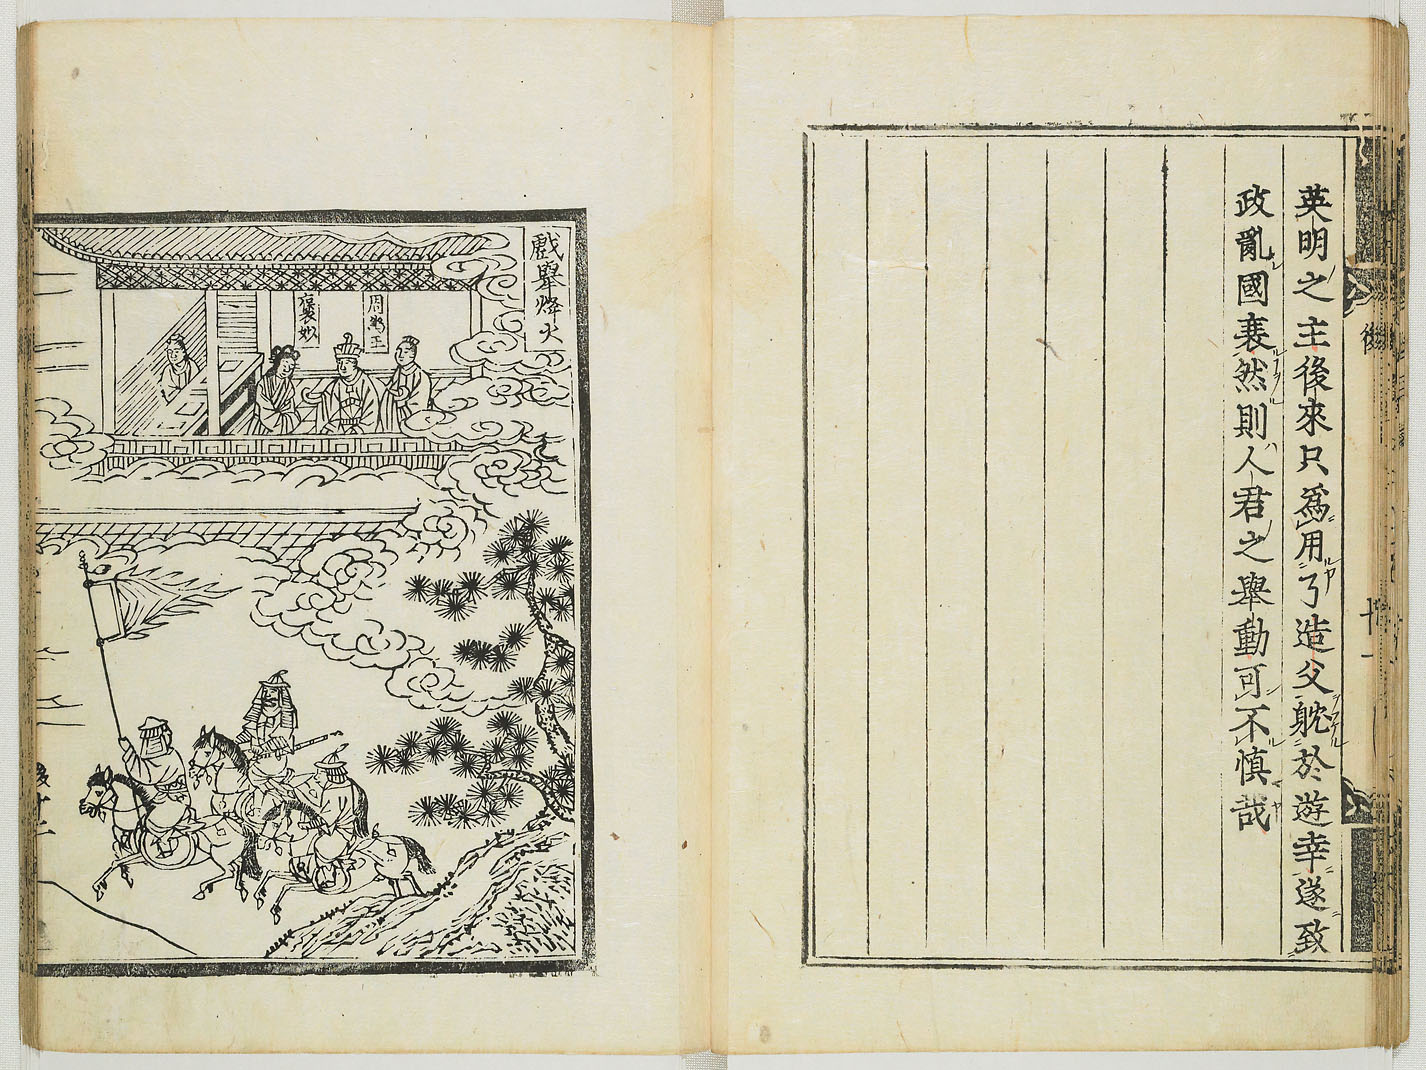 英明之主後來只爲用了造父躭於遊幸遂致
政亂國衰然則人君之舉動可不慎哉
後
十一
戲舉烽火
周幽王
褒姒
後十二